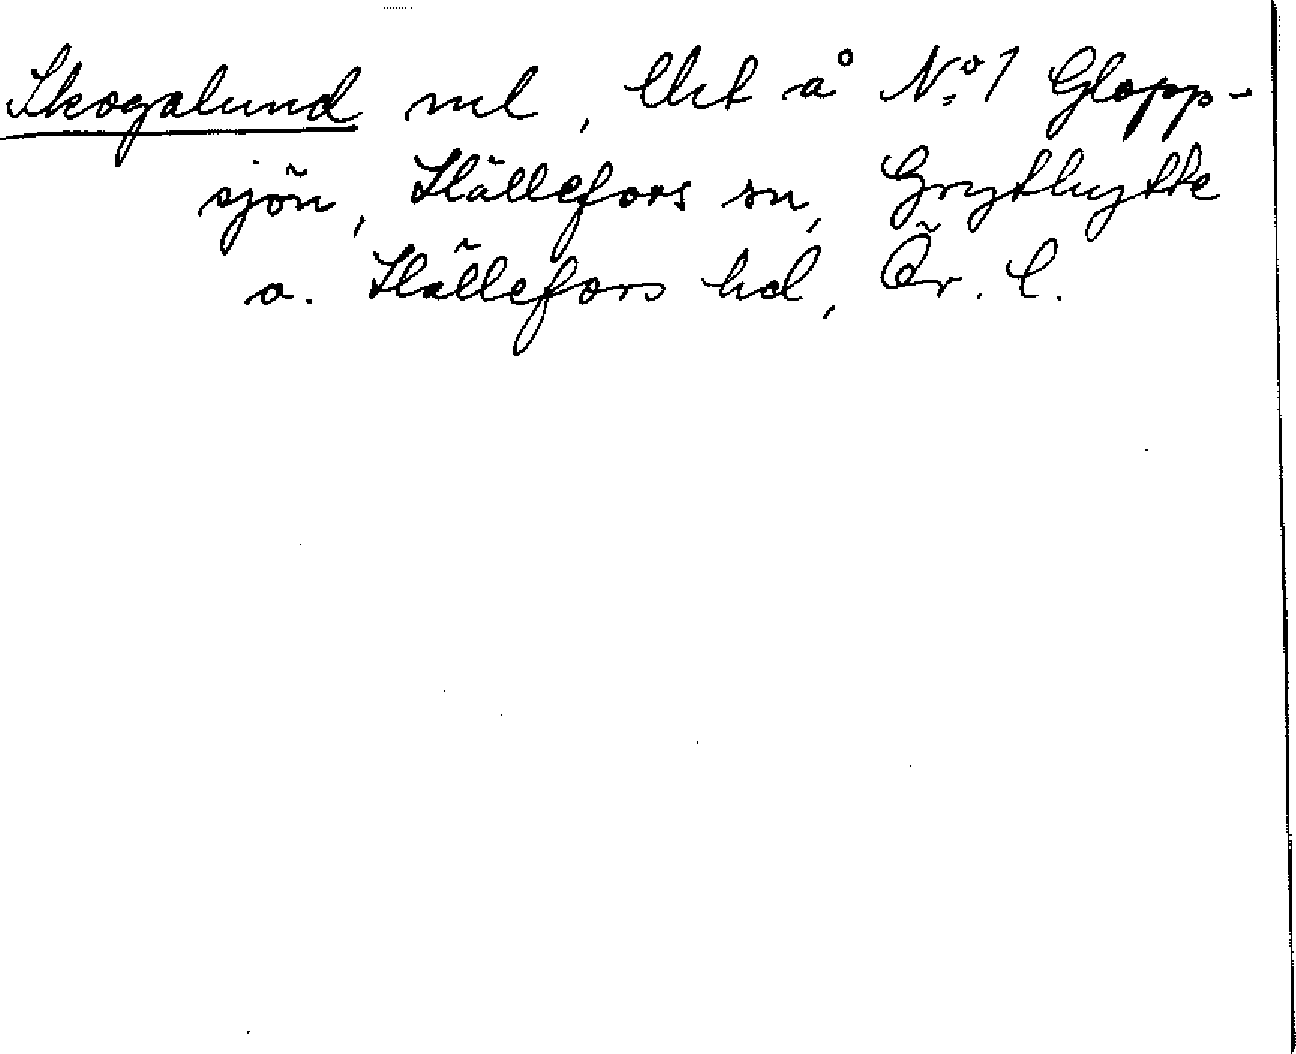 Skogalund nel, Uet å No 1 Glopp-
sjön, Hällefors sn, Grythytte
o. Hällefors hd, Ör. l.